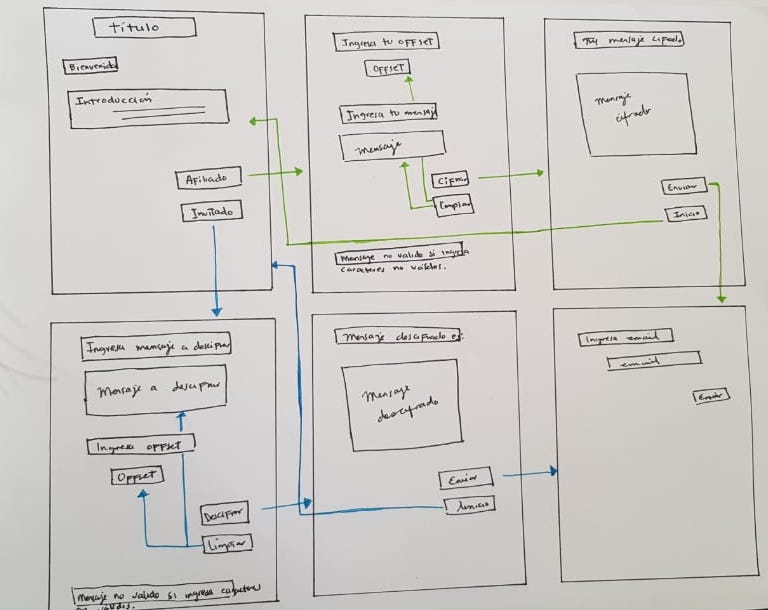 Título
Bienvenido
Introducción
Afiliado
Invitado
Ingresa tu OFFSET
OFFSET
Ingresa tu mensaje
Mensaje
Cifrar
Limpiar
Mensaje no valido si ingresa
caracteres no validos.
Tu mensaje cifrado
Mensaje
cifrado
Enviar
Inicio
Ingresa mensaje a descifrar
Mensaje a descifrar
Ingresa OFFSET
Offset
Descifrar
Limpiar
Mensaje no valido si ingresa caracteres
no validos.
Mensaje descifrado es:
Mensaje
descifrado
Enviar
Inicio
Ingresa email
email
Enviar